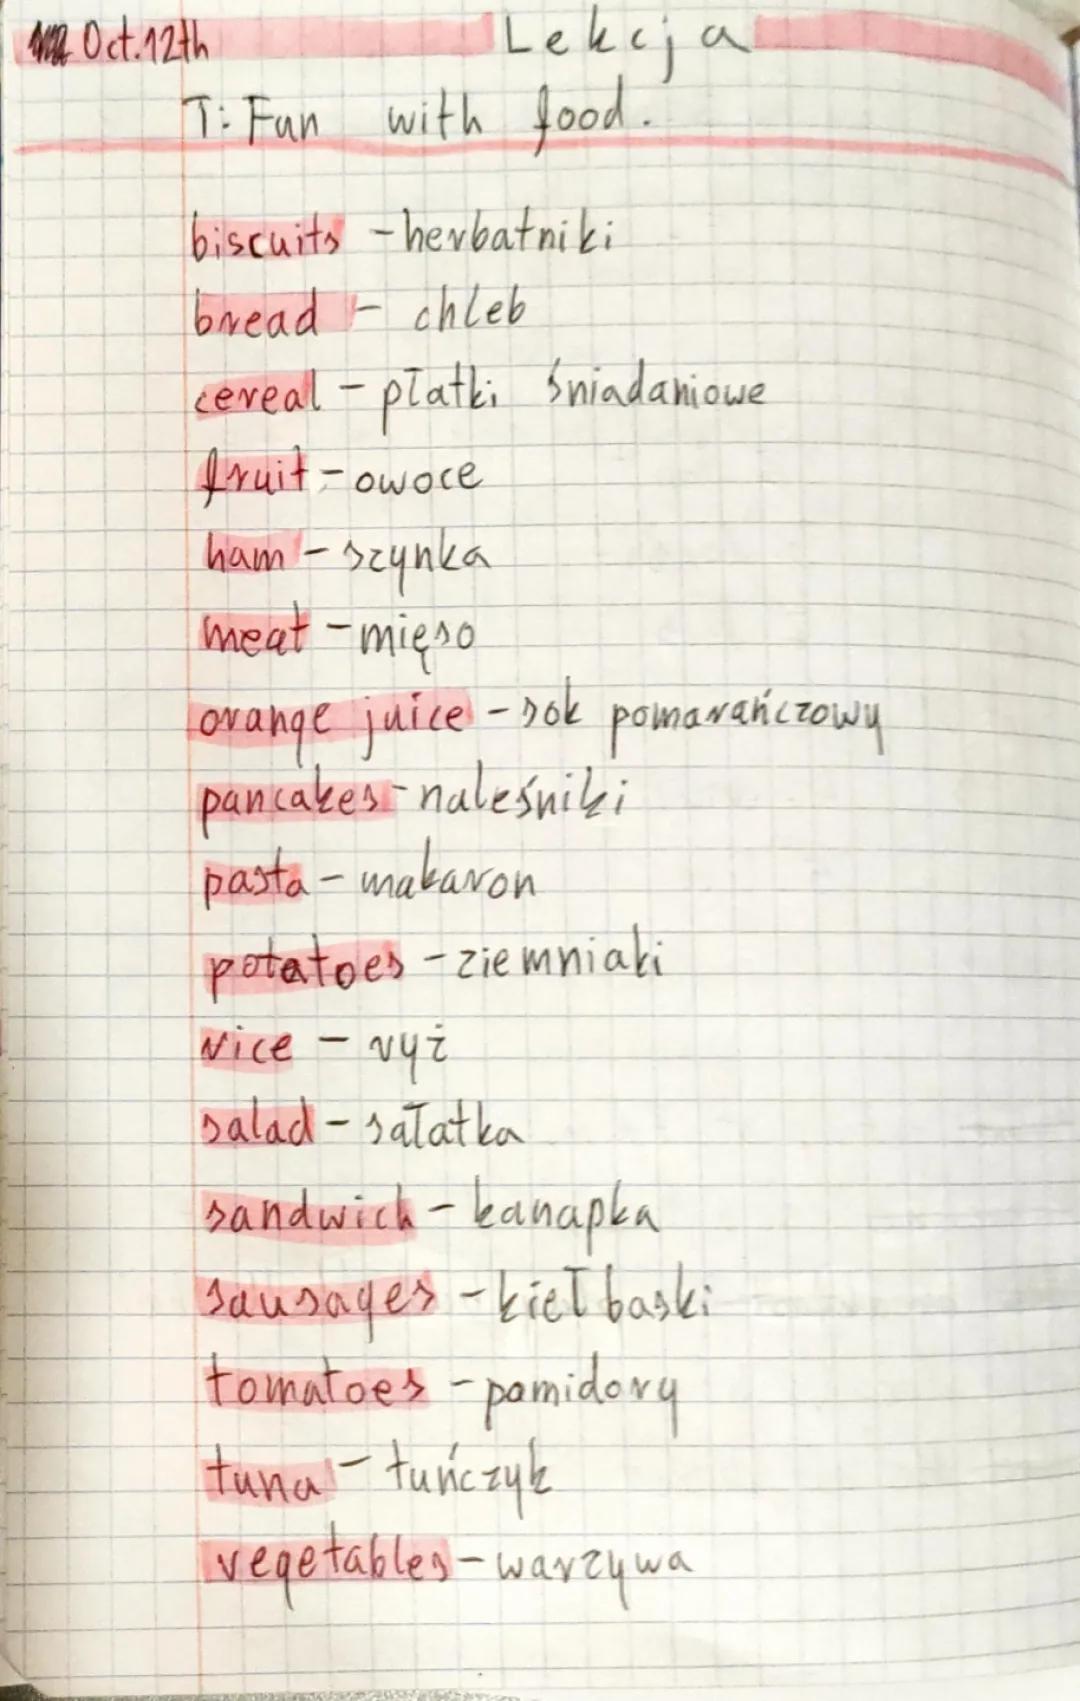 Oct. 12th Lekcja
T: Fun with food.
biscuits - herbatniki
bread - chleb
cereal - płatki śniadaniowe
fruit - owoce
ham - szynka
meat - mięso
orange juice - sok pomarańczowy
pancakes - naleśniki
pasta - makaron
potatoes - ziemniaki
rice - ryż
salad - sałatka
sandwich - kanapka
sausages - kiełbaski
tomatoes - pomidory
tuna - tuńczyk
vegetables - warzywa